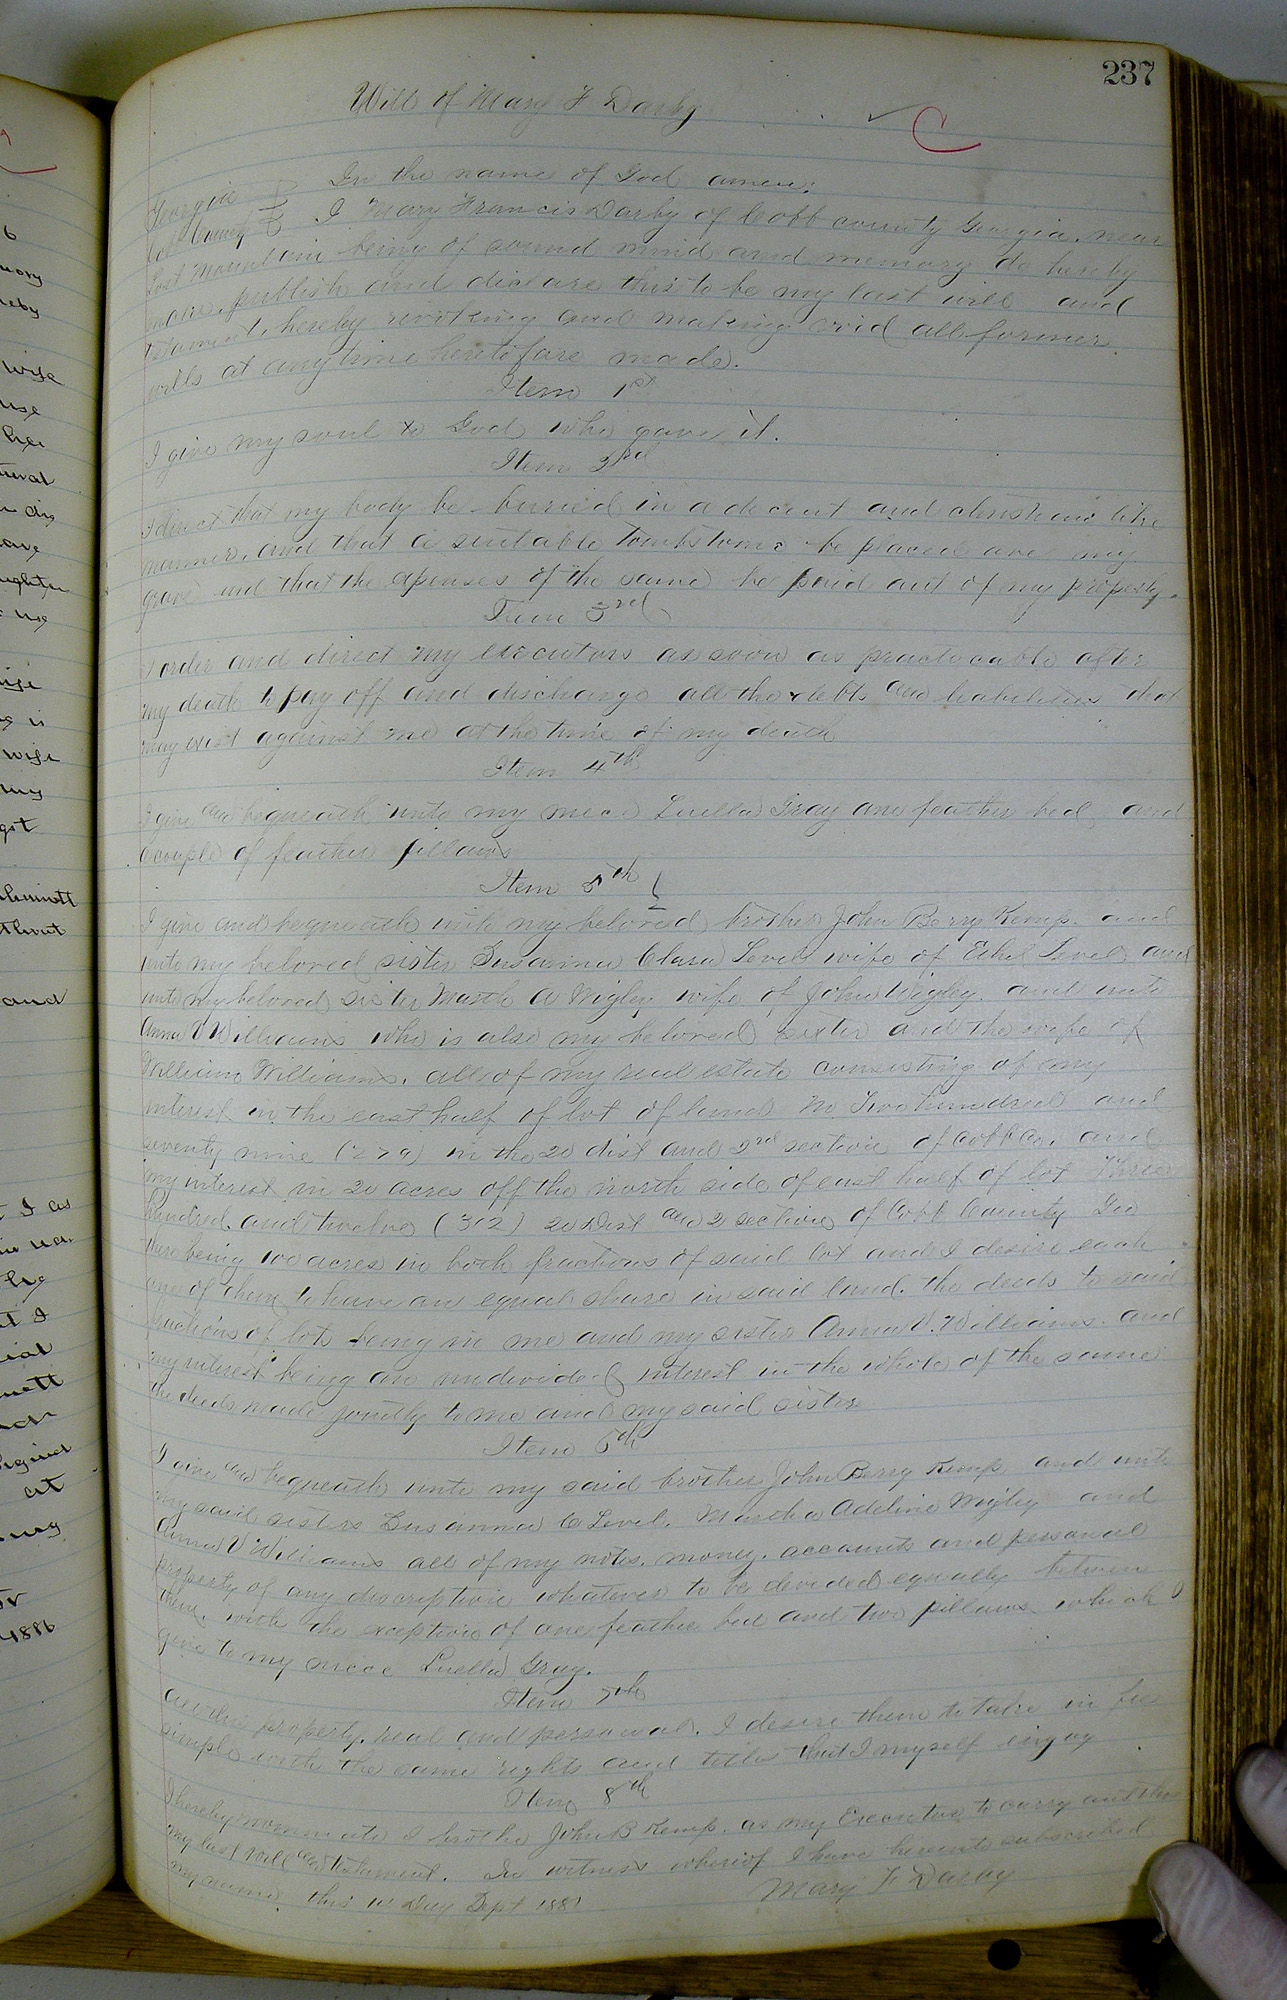 237
Will of Mary F Darby
C
In the name of God amen:
Georgia
Cobb County
I Mary Francis Darby of Cobb county Georgia, near
Lost Mountain being of sound mind and memory do hereby
make, publish and declare this to be my last will and
testament, hereby revoking and making void all former
wills at anytime heretofore made.
Item 1st
I give my soul to God who gave it.
Item 2nd
I direct that my body be buried in a decent and christian like
manner, and that a suitable tombstone be placed over my
grave and that the expenses of the same be paid out of my property.
Item 3rd
I order and direct my executors as soon as practicable after
my death to pay off and discharge all the debts and liabilities that
may exist against me at the time of my death
Item 4th
I give and bequeath unto my niece Luella Gray one feather bed and
a couple of feather pillows
Item 5th
I give and bequeath unto my beloved brother John Berry Kemp. and
unto my beloved sister Susanna Clara Level wife of Ethel Level and
unto my beloved sister Marth A Wigley wife of John Wigley. and unto
Anna V Williams who is also my beloved sister and the wife of
William Williams. all of my real estate consisting of my
interest in the east half of lot of land No Two hundred and
seventy nine (279) in the 20 dist and 2nd section of Cobb Co. and
my interest in 20 acres off the north side of east half of lot Three
hundred and twelve (312) 20 Dist and 2 section of Cobb County Geo
there being 100 acres in both fractions of said lot and I desire each
one of them to have an equal share in said land. the deeds to said
fractions of lots being in me and my sister Anna V. Williams. and
my interest being an undivided interest in the whole of the same
the deeds made jointly to me and my said sister
Item 6th
I give and bequeath unto my said brother John Berry Kemp and unto
my said sisters Susanna C Level. Martha Adeline Wigley and
Anna V Williams all of my notes, money, accounts and personal
property of any discription whatever to be devided equally between
them, with the exception of one feather bed and two pillows which I
give to my niece Luella Gray.
Item 7th
all the property, real and personal, I desire them to take in fee
simple with the same rights and titles that I myself enjoy
Item 8th
I hereby nominate brother John B Kemp. as my Executor to carry out this
my last will and testament. In witness whereof I have hereunto subscribed
my name this Day Sept 188
Mary F Darby